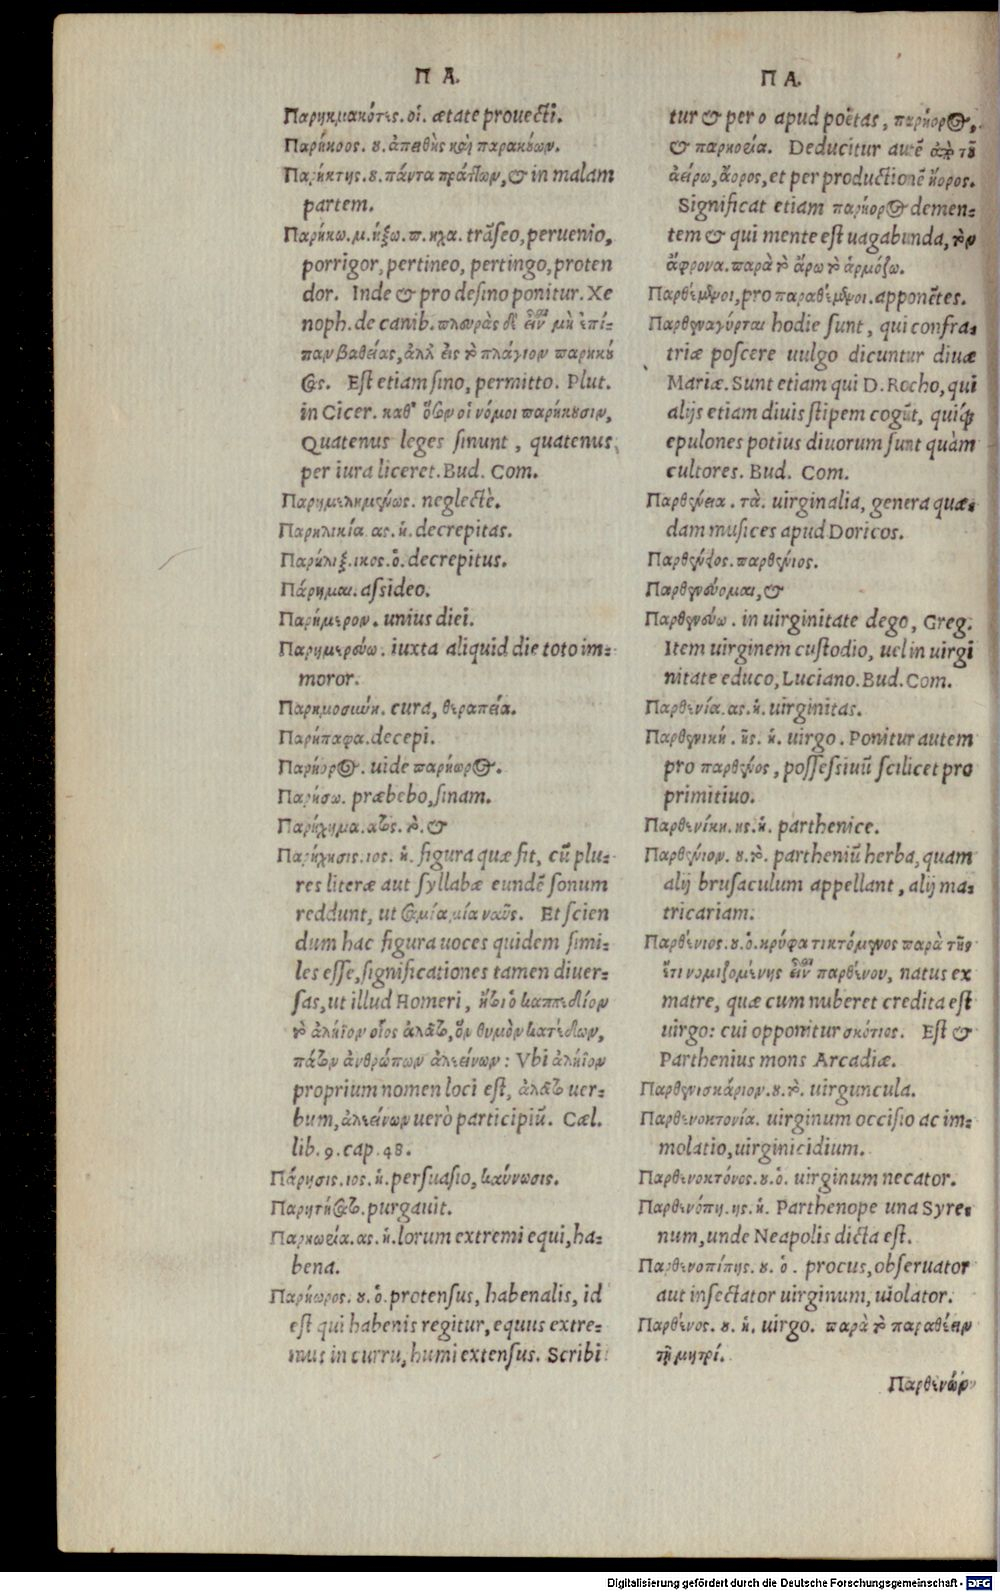 Π Α.
Παρηκμακότες. οἱ. ætate prouecti.
Παρήκοος. ου. ἀπειθὴς καὶ παρακούων.
Παρήκτης. ου. πάντα πράττων, & in malam
partem.
Παρήκω. μ. ήξω. π. ηχα. trāseo, peruenio,
porrigor, pertineo, pertingo, proten
dor. Inde & pro desino ponitur. Xe
noph. de canib. πλευρὰς δὲ εἶναι μὴ ἐπί-
παν βαθείας, ἀλλ' εἰς τὸ πλάγιον παρηκού
σας. Est etiam sino, permitto. Plut.
in Cicer. καθ' ὅσον οἱ νόμοι παρήκουσιν,
Quatenus leges sinunt, quatenus
per iura liceret. Bud. Com.
Παρημελημένως. neglectè.
Παρηλικία. ας. ἡ. decrepitas.
Παρήλιξ. ικος. ὁ. decrepitus.
Πάρημαι. assideo.
Παρήμερον. unius diei.
Παρημερεύω. iuxta aliquid die toto im-
moror.
Παρημοσύνη. cura, θεραπεία.
Παρήπαφα. decepi.
Παρήορος. uide παρήωρος.
Παρήσω. præbebo, sinam.
Παρήχημα. ατος. τὸ. &
Παρήχησις. ιος. ἡ. figura quæ fit, cũ plu-
res literæ aut syllabæ eundē sonum
reddunt, ut μία ναῦς. Et scien
dum hac figura uoces quidem simi-
les esse, significationes tamen diuer-
sas, ut illud Homeri, ἤτοι ὁ καππεδίον
τὸ ἀλήϊον οἶος ἀλᾶτο, ὃν θυμὸν κατέδων,
πάτον ἀνθρώπων ἀλεείνων: Vbi ἀλήϊον
proprium nomen loci est, ἀλᾶτο uer-
bum, ἀλεείνων uerò participiũ. Cæl.
lib. 9. cap. 48.
Πάρησις. ιος. ἡ. persuasio,
Παρητήσατο. purgauit.
Παρηωρία. ας. ἡ. lorum extremi equi, ha-
bena.
Παρήωρος. ου. ὁ. protensus, habenalis, id
est qui habenis regitur, equus extre-
mus in curru, humi extensus. Scribi
Π Α.
tur & per o apud poëtas, παρήορος,
& παρηορία. Deducitur autē ἀπὸ τοῦ
ἀείρω, ἄορος, et per productionē ἤορος.
Significat etiam παρήορος demen-
tem & qui mente est uagabunda, τὸν
ἄφρονα. παρὰ τὸ ἄρω τὸ ἁρμόζω.
Παρθέμενοι, pro παραθέμενοι. apponētes.
Παρθεναγύρται hodie sunt, qui confra-
triæ poscere uulgo dicuntur diuæ
Mariæ. Sunt etiam qui D. Rocho, qui
alijs etiam diuis stipem cogũt, quiq;
epulones potius diuorum sunt quàm
cultores. Bud. Com.
Παρθένεια. τὰ. uirginalia, genera quæ-
dam musices apud Doricos.
Παρθένειος. παρθένιος.
Παρθενεύομαι, &
Παρθενεύω. in uirginitate dego, Greg.
Item uirginem custodio, uel in uirgi
nitate educo, Luciano. Bud. Com.
Παρθενία. ας. ἡ. uirginitas.
Παρθενική. ῆς. ἡ. uirgo. Ponitur autem
pro παρθένος, possessiuũ scilicet pro
primitiuo.
Παρθενίκη. ης. ἡ. parthenice.
Παρθένιον. ου. τὸ. partheniũ herba, quam
alij brusaculum appellant, alij ma-
tricariam.
Παρθένιος. ου. ὁ. κρύφα τικτόμενος παρὰ τῆς
ἔτι νομιζομένης εἶναι παρθένου, natus ex
matre, quæ cum nuberet credita est
uirgo: cui opponitur σκότιος. Est &
Parthenius mons Arcadiæ.
Παρθενισκάριον. ου. τὸ. uirguncula.
Παρθενοκτονία. uirginum occisio ac im-
molatio, uirginicidium.
Παρθενοκτόνος. ου. ὁ. uirginum necator.
Παρθενόπη. ης. ἡ. Parthenope una Syre-
num, unde Neapolis dicta est.
Παρθενοπίπης. ου. ὁ. procus, obseruator
aut insectator uirginum, uiolator.
Παρθένος. ου. ἡ. uirgo. παρὰ τὸ παραθέειν
τῇ μητρί.
Παρθενών
Digitalisierung gefördert durch die Deutsche Forschungsgemeinschaft - DFG